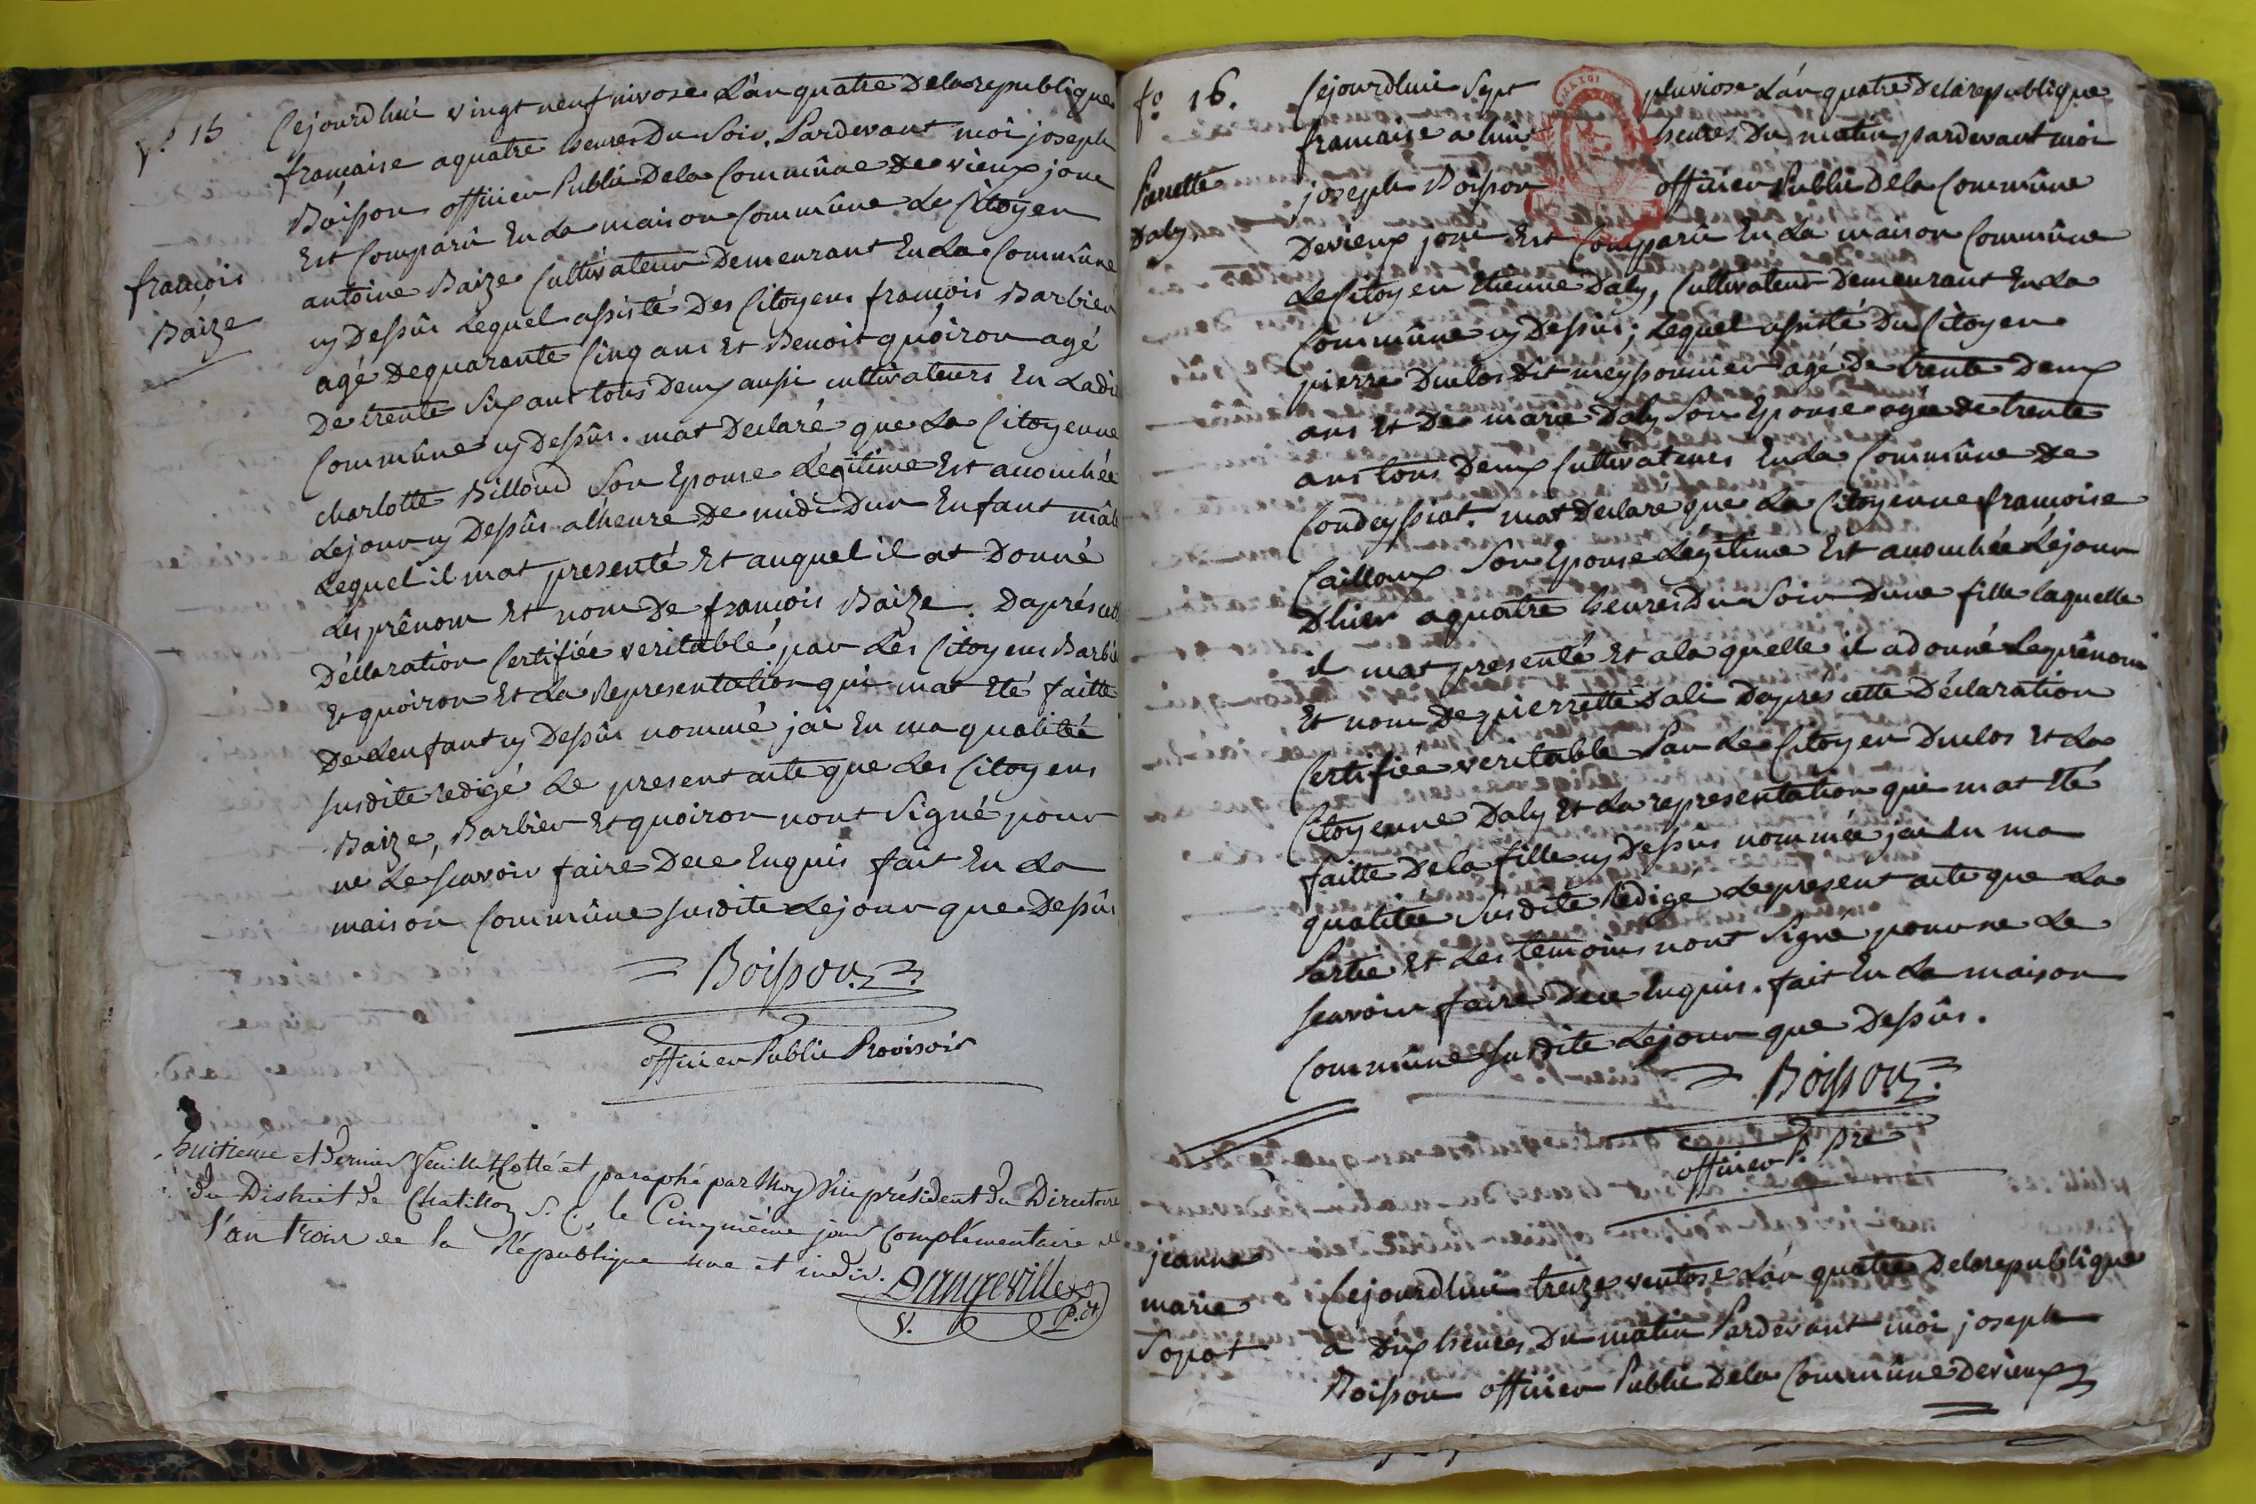 fº 15
françois
Baize
Cejourdhui vingt neuf nivose Lan quatre Delarepublique
francaise aquatre heures Du Soir. Pardevant moi joseph
Boisson officier Public Dela Commûne de vieux jonc
Est Comparû En La maison Commûne Le Citoyen
antoine Baize Cultivateur Demeurant En La Commûne
cy Dessûs Lequel assisté Des Citoyens françois Barbier
agé de quarante Cinq ans Et Benoit quoiron agé
De trente Six ans tous Deux aussi cultivateurs En Ladi
Commûne cy Dessûs. mat Declaré que La Citoyenne
charlotte Billoud Son Epouse Légitime Est accouchée
Lejour cy Dessûs alheure De midi Dun Enfant mâle
Lequel il mat presenté Et auquel il at Donné
Les prênom Et nom De francois Baize. Daprès cette
Déclaration Certifiée veritable par Les Citoyens Barbie
Et quoiron Et La Representation qui mat Eté faitte
De Lenfant cy Dessûs nommé jai En ma qualitéé
Susdite redigé Le present acte que Les Citoyens
Baize, Barbier Et quoiron nont Signé pour
ne Le scavoir faire Dece Enquis fait En La
maison Commûne susdite Lejour que Dessûs
Boisson
officier Public Provisoir
huitième et Dernier feuillet Cotté et paraphé par Moy Vice président du Directoire
du District de Chatillon S. C., le Cinquième jour Complémentaire de
l'an trois de la République une et indiv.
Dangeville
V. P.dt
fº 16.
Pierrette
Daly.
Cejourdhui Sept pluviose Lan quatre Delarepublique
francaise a huit heures Du matin pardevant moi
joseph Boisson officier Public Dela Commûne
Devieux jonc Est Comparû En La maison Commûne
Le Citoyen Etienne Daly, Cultivateur Demeurant En La
Commûne cy Dessûs; Lequel assisté Du Citoyen
pierre Duclos Dit meyssonnier agé De trente Deux
ans Et De marie Daly Son Epouse agée de trente
ans tous Deux Cultivateurs En La Commûne de
Condeyssiat. mat Declaré que La Citoyenne francoise
Cailloux Son Epouse Légitime Est accouchée Lejour
Dhier aquatre heures Du Soir Dune fille laquelle
il mat presenté Et ala quelle il adonné Leprênom
Et nom De pierrette Dali Daprès cette Déclaration
Certifiée veritable Par Le Citoyen Duclos Et La
Citoyenne Daly Et La representation qui mat Eté
faitte Dela fille cy Dessûs nommée jai En ma
qualitée Susdite Redigé Le present acte que La
Partie Et Les temoins nont Signé pour ne Le
scavoir faire Dece Enquis. fait En La maison
Commûne susdite Lejour que Dessûs.
Boisson
officier P. Pre
jeanne
marie
Sopat
Cejourdhui treize ventose Lan quatre Delarepublique
a Dix heures Du matin Pardevant moi joseph
Boisson officier Public Dela Commûne Devieux